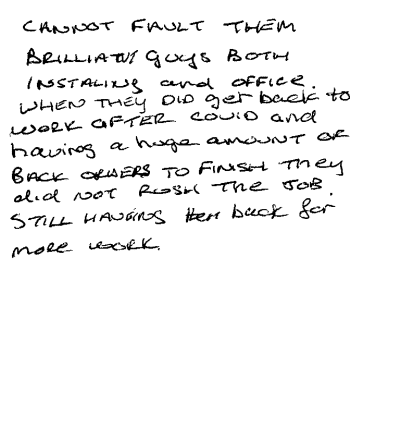 CANNOT FAULT THEM
BRILLIANT guys BOTH
INSTALING and OFFICE.
WHEN THEY DID get back to
WORK AFTER COVID and
having a huge amount OF
BACK ORDERS TO FINISH They
did NOT RUSH THE JOB.
STILL HAVING them back for
more work.